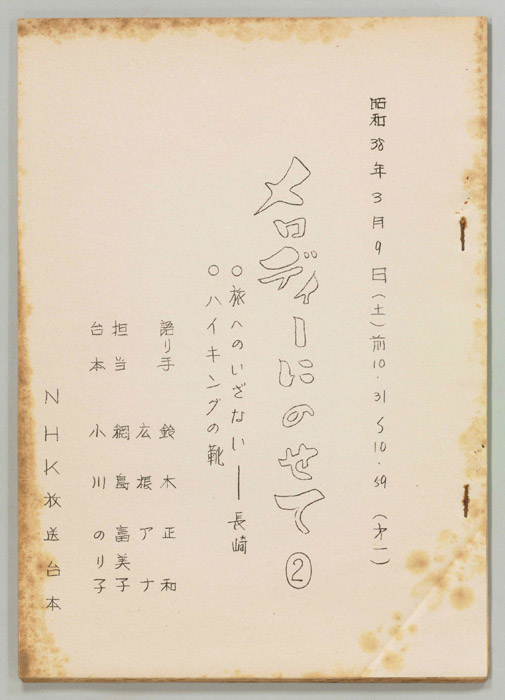 昭和38年3月9日(土)前10.31〜10.59(才一)
メロディーにのせて②
○旅へのいざない――長崎
○ハイキングの靴
語り手 鈴木正和
広根アナ
担当 綱島富美子
台本 小川のり子
NHK放送台本